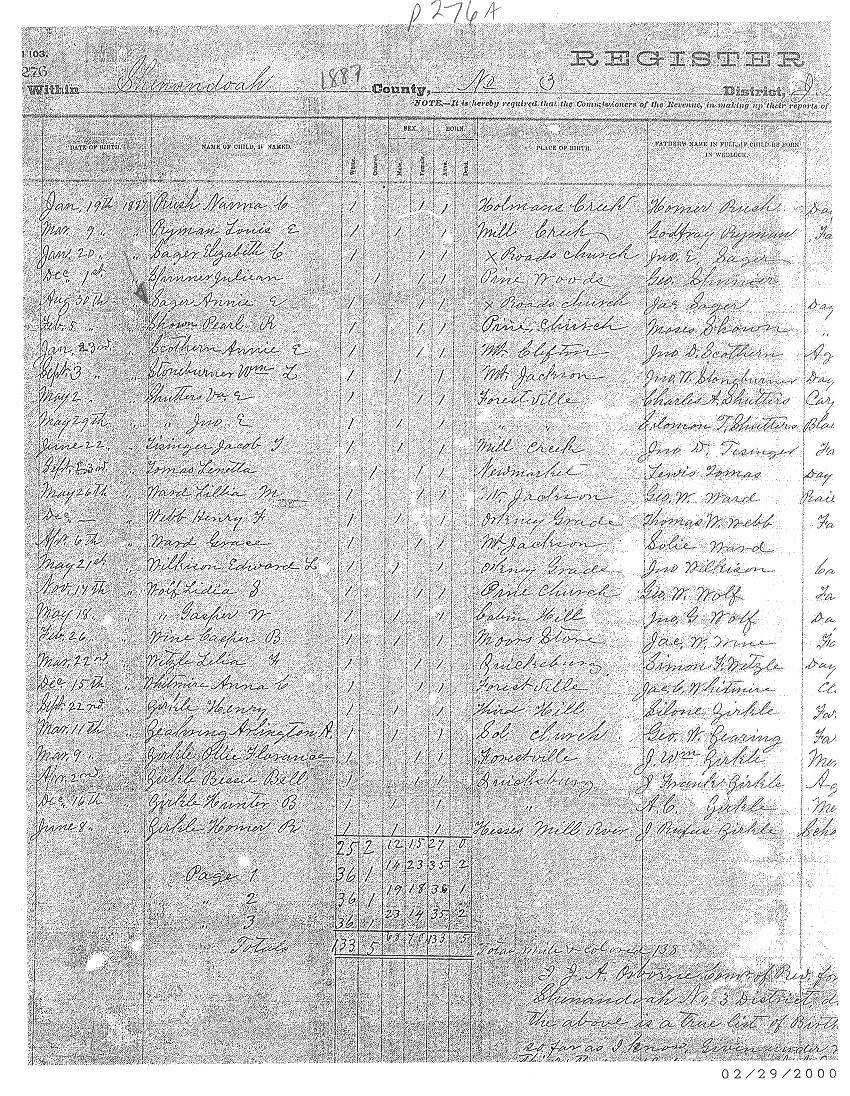 p 276 A
103.
276
REGISTER
Within Shenandoah 1887 County, No 3 District, J.
NOTE.—It is hereby required that the Commissioners of the Revenue, in making up their reports of
SEX. BORN.
DATE OF BIRTH. NAME OF CHILD, IF NAMED. White. Colored. Male. Female. Alive. Dead. PLACE OF BIRTH. FATHER'S NAME IN FULL, IF CHILD BE BORN
IN WEDLOCK.
Jan. 19th 1887 Rush Narma C 1 1 1 Holmans Creek Homer Rush Day
Mar. 9 " Ryman Louis E 1 1 1 Mill Creek Godfray Ryman Fa
Jan. 20 " Sager Elizabeth C 1 1 1 x Roads church Jno. E. Sager
Dec. 1st " Spinner Julican 1 1 1 Pine Woods Geo. Spinner
Aug 30th " Sager Annie E 1 1 1 x Roads church Jac Sager Day
Feb. 5 " " Shown Pearl R 1 1 1 Pine church Moses Shown "
Jan. 23rd " Scothern Annie E 1 1 1 Mt. Clifton Jno D. Scothern Ag
Sept. 3 " " Stoneburner Wm L 1 1 1 Mt. Jackson Jno. W. Stoneburner Day
May 2 " Shutters Va. E 1 1 1 Forestville Charles A. Shutters Car
May 29th " " Jno. E 1 1 1 " " Solomon T. Shutters Blac
June 22 " Tisinger Jacob T 1 1 1 Mill Creek Jno D. Tisinger Fa
Sept. 23rd " Tomas Linetta 1 1 1 Newmarket Lewis Tomas Day
May 26th " Ward Lillia M 1 1 1 Mt. Jackson Geo. W. Ward Rail
Dec — " Webb Henry H 1 1 1 Orkney Grade Thomas W. Webb Fa
Apr. 6th " Ward Grace 1 1 1 Mt. Jackson Solie Ward
May 21st " Wilkison Edward L 1 1 1 Orkney Grade Jno Wilkison
Nov. 14th " Wolf Lidia S 1 1 1 Pine Church Geo. W. Wolf Fa
May 18 " " Gasper W 1 1 1 Cabin Hill Jno. G. Wolf Da
Feb. 26 " Wine Casper B 1 1 1 Moors Store Jac. W. Wine Fa
Mar. 22nd " Wetzle Lilia F 1 1 1 Quicksburg Simon F. Wetzle Day
Dec 15th " Whitmire Anna C 1 1 1 Forestville Jac. C. Whitmire
Sept. 22nd " Zirkle Henry 1 1 1 Third Hill Silone Zirkle Far
Mar. 11th " Geahring Arlington A. 1 1 1 Sol church Geo. W. Gearing Fa
Mar. 9 " Zirkle Ollie Floranae 1 1 1 Forestville J. Wm Zirkle Me
Apr. 2nd " Zirkle Bessie Bell 1 1 1 Quicksburg J Frank Zirkle Ag
Dec. 16th " Zirkle Hunter B 1 1 1 " A. C. Zirkle Me
June 8 " Zirkle Homor R 1 1 1 Hesses Mill River J Rufus Zirkle Scho
25 2 12 15 27 0
Page 1 36 1 14 23 35 2
" 2 36 1 19 18 36 1
" 3 36 1 23 14 35 2
Totals 133 5 133 5 Total colored 138
I J. A. Osborne, Com. of Rev. for
Shenandoah No. 3 District, d
the above is a true list of Birth
so far as I know. Given under
02/29/2000